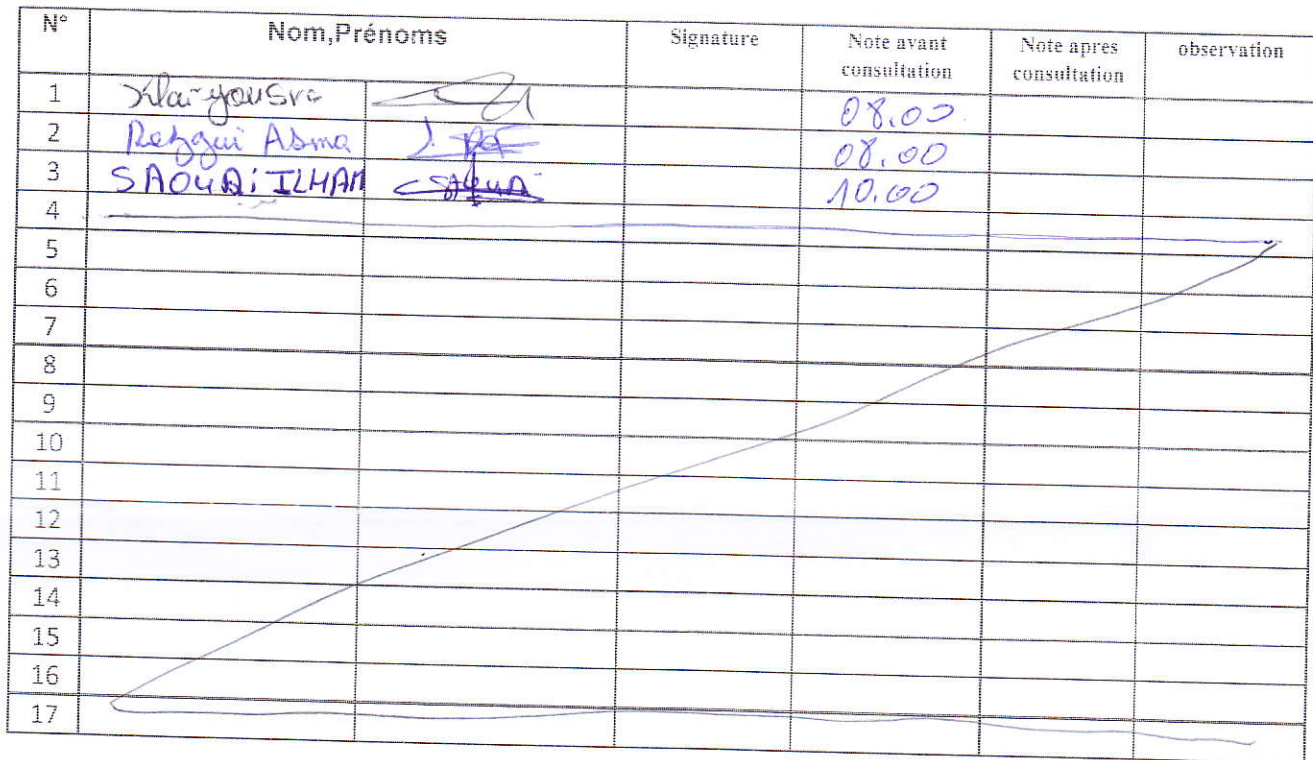 N° Nom,Prénoms Signature Note avant consultation Note apres consultation observation
1 yousra 08.00
2 Rezgui Asma 08.00
3 SAOUDi ILHAM 10.00
4
5
6
7
8
9
10
11
12
13
14
15
16
17